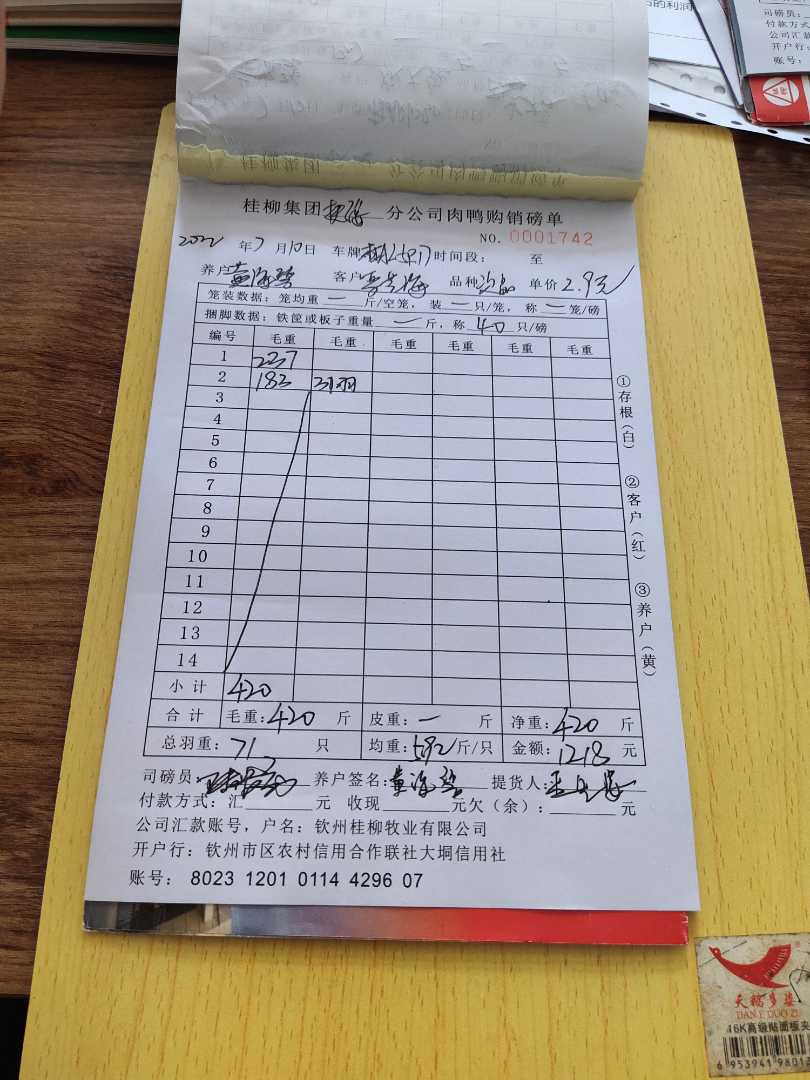 的利润
司磅员：
付款方式
公司汇
开户行：
账号：
桂柳集团 分公司肉鸭购销磅单
NO. 0001742
2022 年 7 月 10 日 车牌 时间段： 至
养户 黄 客户 品种 单价 2.9元
笼装数据：笼均重 一 斤/空笼，装 一 只/笼，称 一 笼/磅
捆脚数据：铁筐或板子重量 一 斤，称 40 只/磅
编号 毛重 毛重 毛重 毛重 毛重 毛重
1 237
2 183 31羽
3
4
5
6
7
8
9
10
11
12
13
14
小计 420
合计 毛重：420 斤 皮重：一 斤 净重：420 斤
总羽重：71 只 均重：5.92 斤/只 金额：1218 元
司磅员 养户签名： 提货人：
付款方式：汇 元 收现 元欠（余）： 元
公司汇款账号，户名：钦州桂柳牧业有限公司
开户行：钦州市区农村信用合作联社大垌信用社
账号： 8023 1201 0114 4296 07
①存根（白）
②客户（红）
③养户（黄）
天福多姿
TIAN F DUO ZI
16K高级贴面板夹
6 953941 98012